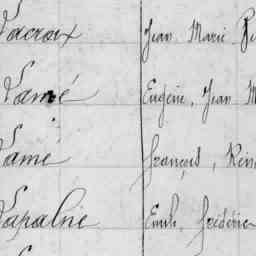 Lacroix Jean Marie
Lamé Eugène, Jean M
Lamé François, René
Lapalrie Emile, Frédéric